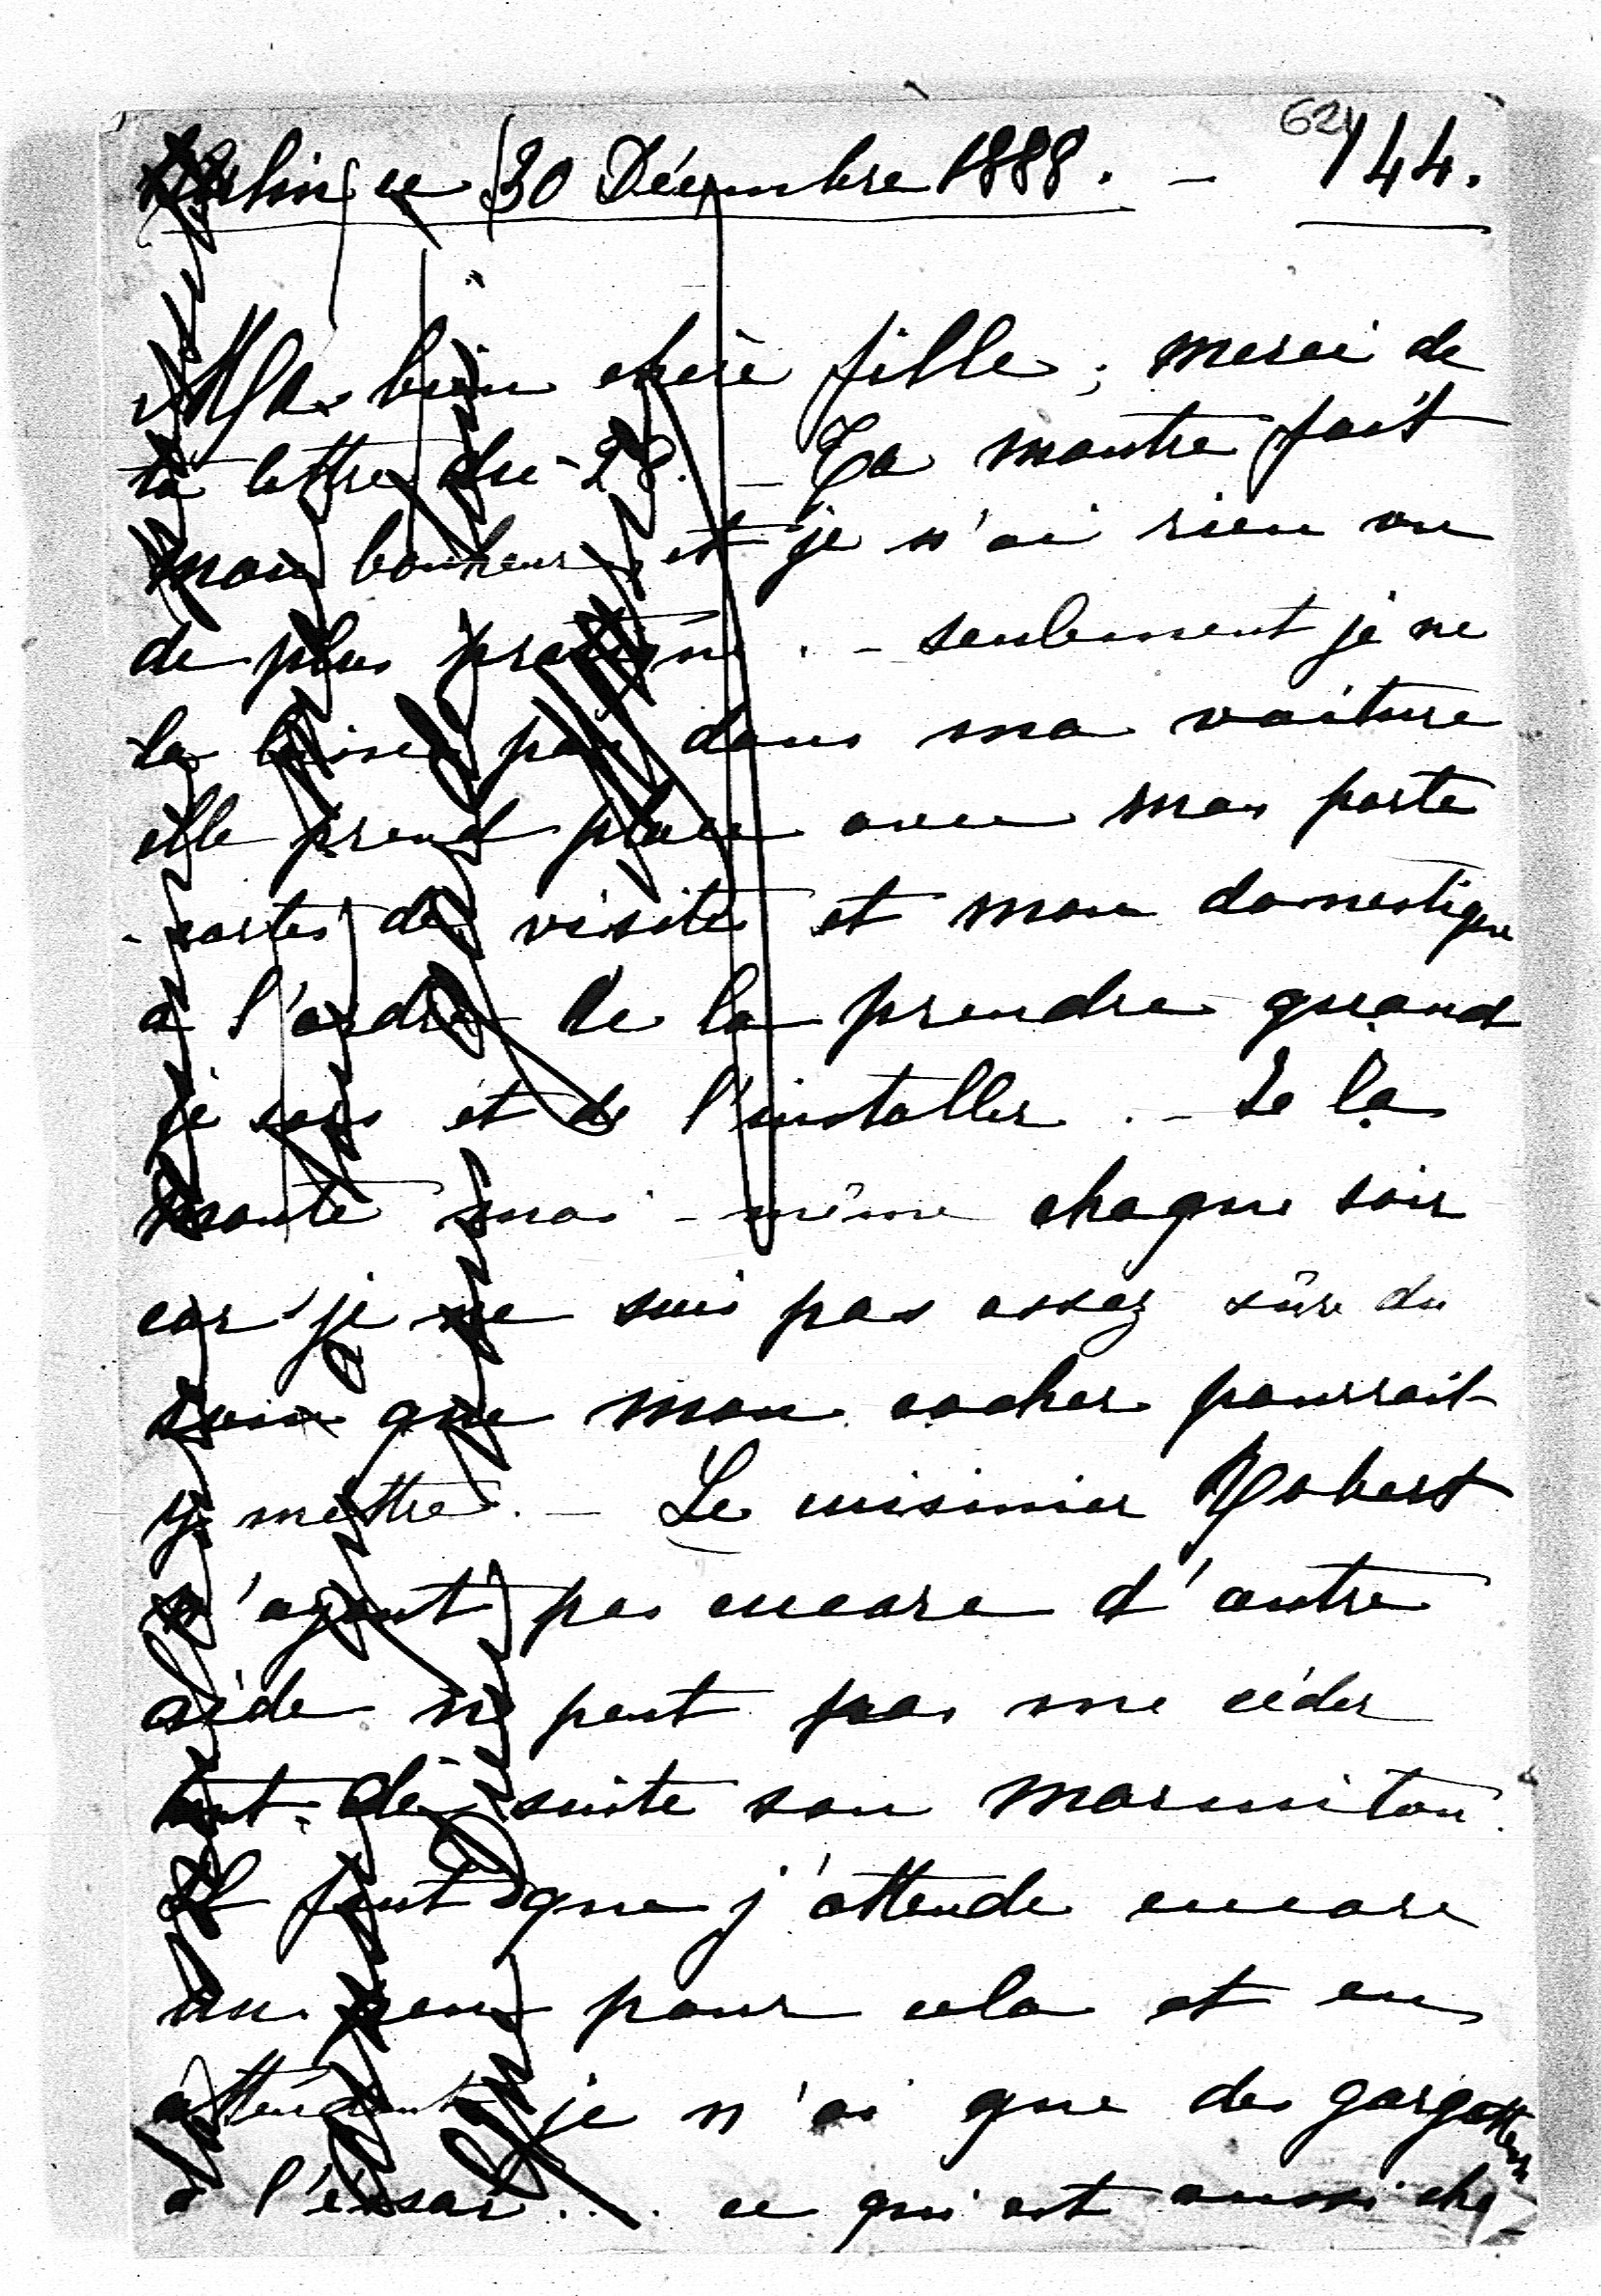 62 144.
Berlin ce 30 Décembre 1888. -
Ma bien chère fille; merci de
ta lettre du 28. - Ta montre fait
mon bonheur, et je n'ai rien vu
de plus . - seulement je ne
la laisse pas dans ma voiture
elle prend place avec mon porte
- cartes de visite et mon domestique
a l'ordre de la prendre quand
je sors et de l'installer. - Je la
monte moi-même chaque soir
car je ne suis pas assez sûre du
soin que mon cocher pourrait
y mettre. - Le cuisinier Robert
n'ayant pas encore d'autre
aide ne peut pas me céder
tout de suite son marmiton.
Il faut que j'attende encore
un peu pour cela et en
attendant je n'ai que des
à l'essai... ce qui est aussi